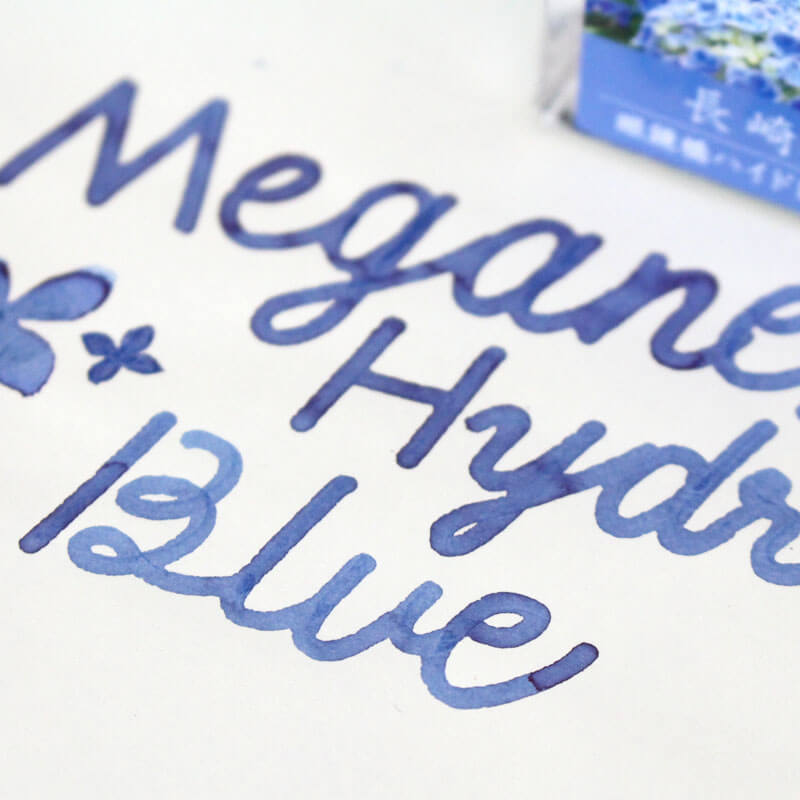 長崎
眼鏡橋ハイド
Megane
Hydr
Blue